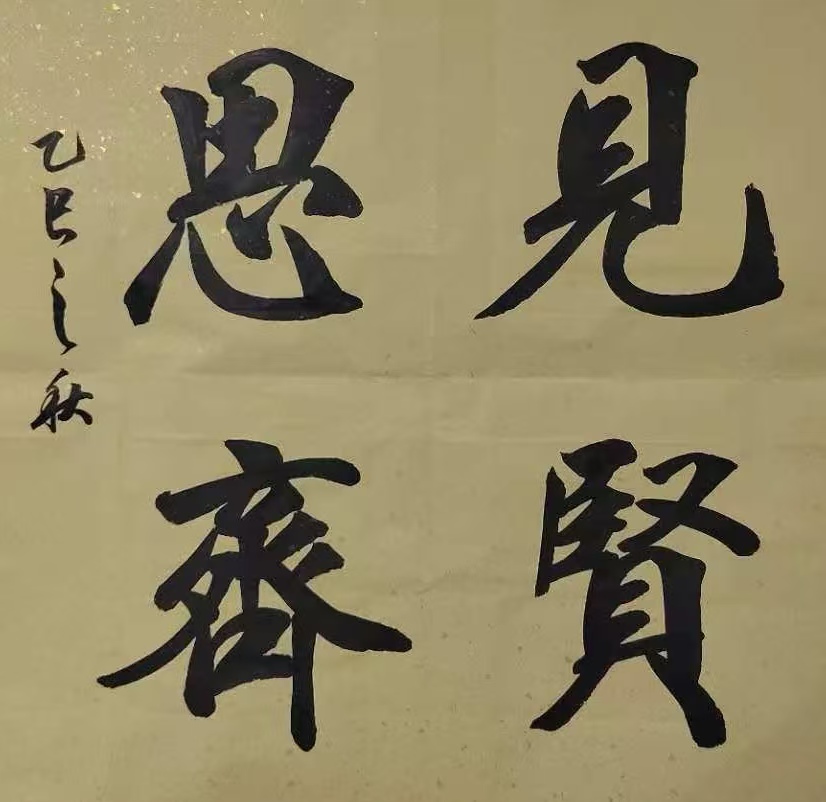 見賢
思齊
乙巳之秋